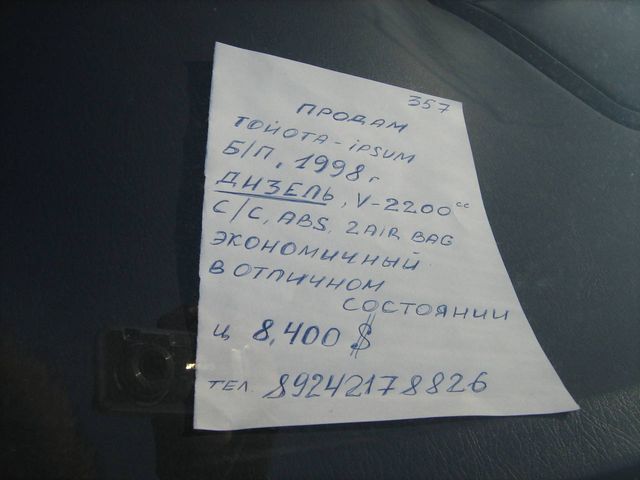 357
ПРОДАМ
ТОЙОТА-ipSUM
Б/П, 1998 г
ДИЗЕЛЬ, V-2200 cc
С/С, ABS, 2 AIR BAG
ЭКОНОМИЧНЫЙ
В ОТЛИЧНОМ
СОСТОЯНИИ
Ц 8,400 $
ТЕЛ 89242178826